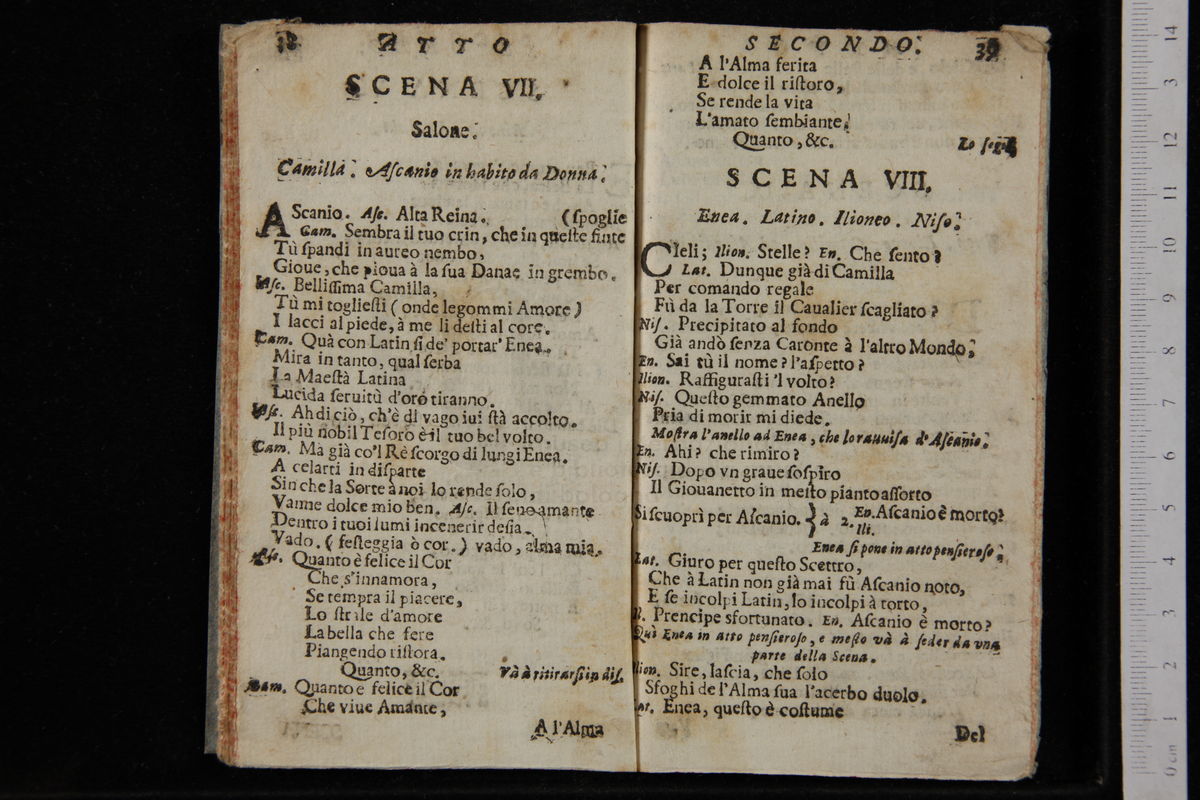 38 ATTO
SCENA VII.
Salone.
Camilla. Aſcanio in habito da Donna.
AScanio. Aſc. Alta Reina. (ſpoglie
Cam. Sembra il tuo crin, che in queſte finte
Tù ſpandi in aureo nembo,
Gioue, che pioua à la ſua Danae in grembo.
Aſc. Belliſſima Camilla.
Tù mi toglieſti (onde legommi Amore)
I lacci al piede, à me li deſti al core.
Cam. Quà con Latin ſi de' portar' Enea.
Mira in tanto, qual ſerba
La Maeſtà Latina
Lucida ſeruitù d'oro tiranno.
Aſc. Ah di ciò, ch'è di vago iui ſtà accolto.
Il più nobil Teſoro è il tuo bel volto.
Cam. Mà già co'l Rè ſcorgo di lungi Enea.
A celarti in diſparte
Sin che la Sorte à noi lo rende ſolo,
Vanne dolce mio ben. Aſc. Il ſeno amante
Dentro i tuoi lumi incenerir deſia.
Vado. (feſteggia ò cor.) vado, alma mia.
Aſc. Quanto è felice il Cor
Che s'innamora,
Se tempra il piacere,
Lo ſtrale d'amore
La bella che fere
Piangendo riſtora.
Quanto, &c. Và à ritirarſi in diſ.
Cam. Quanto e felice il Cor
Che viue Amante,
A l'Alma
SECONDO. 39
A l'Alma ferita
E dolce il riſtoro,
Se rende la vita
L'amato ſembiante.
Quanto, &c. Lo ſegue
SCENA VIII.
Enea. Latino. Ilioneo. Niſo.
CIeli; Ilion. Stelle? En. Che ſento?
Lat. Dunque già di Camilla
Per comando regale
Fù da la Torre il Caualier ſcagliato?
Niſ. Precipitato al fondo
Già andò ſenza Caronte à l'altro Mondo.
En. Sai tù il nome? l'aſpetto?
Ilion. Raffiguraſti 'l volto?
Niſ. Queſto gemmato Anello
Pria di morir mi diede.
Moſtra l'anello ad Enea, che lo rauuiſa d'Aſcanio.
En. Ahi? che rimiro?
Niſ. Dopo vn graue ſoſpiro
Il Giouanetto in meſto pianto aſſorto
Si ſcuoprì per Aſcanio. } à 2. En. Ili. Aſcanio è morto?
Enea ſi pone in atto penſieroſo.
Lat. Giuro per queſto Scettro,
Che à Latin non già mai fù Aſcanio noto,
E ſe incolpi Latin, lo incolpi à torto,
Il. Prencipe sfortunato. En. Aſcanio è morto?
Quì Enea in atto penſieroſo, e meſto và à ſeder da vna
parte della Scena.
Ilion. Sire, laſcia, che ſolo
Sfoghi de l'Alma ſua l'acerbo duolo.
Lat. Enea, queſto è coſtume
Del
0 cm 1 2 3 4 5 6 7 8 9 10 11 12 13 14